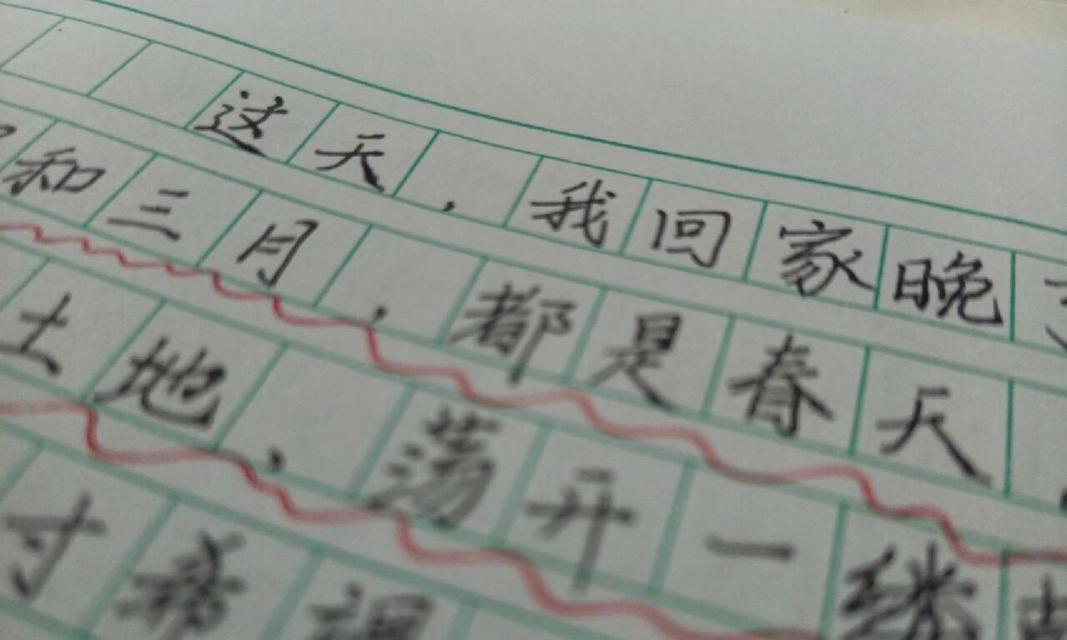 这天，我回家晚
和三月，都是春天
土地、荡开一
寸